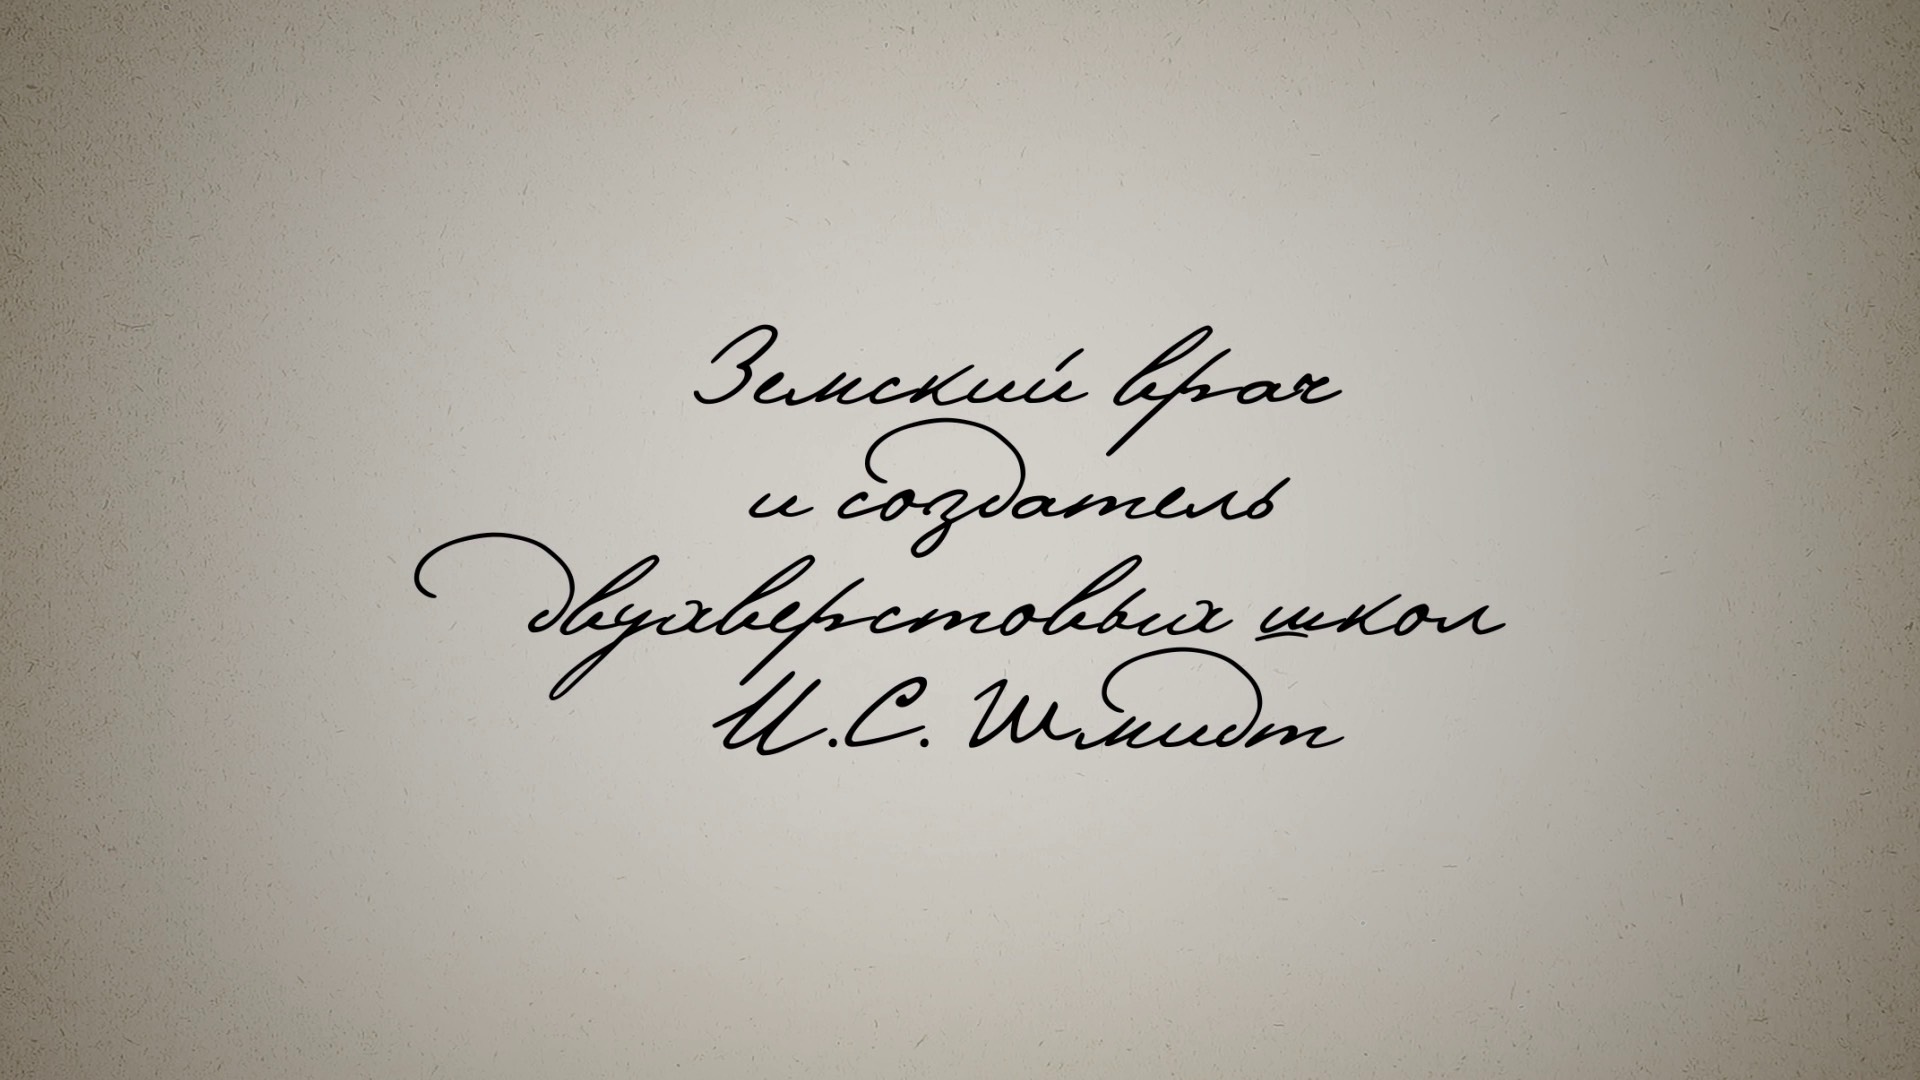 Земский врач
и создатель
двухверстовых школ
И.С. Шмидт